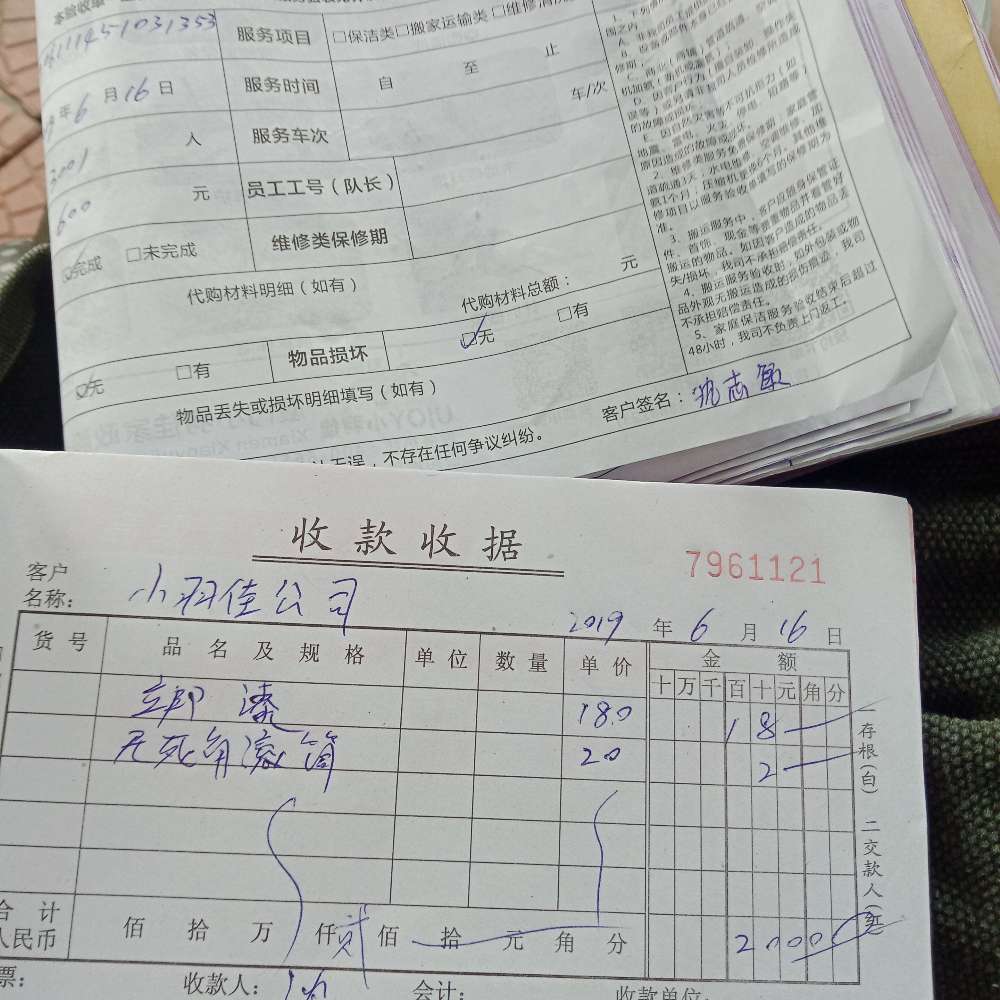 本验收单
服务项目 □保洁类□搬家运输类□维修
111451031353
年6月16日 服务时间 自 至 止
2001 人 服务车次 车/次
600 元 员工工号（队长）
☑完成 □未完成 维修类保修期
代购材料明细（如有） 代购材料总额： 元
☑无 □有 物品损坏 ☑无 □有
物品丢失或损坏明细填写（如有）
客户签名：
无误，不存在任何争议纠纷。
2、维修类服务免费保修期，家庭管
道疏通3天；水电维修、空调维修、加
氨1个月；压缩机更换6个月。其他维
修项目以服务验收单填写的保修期为
准。
3、搬运服务中，客户应随身保管证
件、首饰、现金等贵重物品并看管好
搬运的物品，如因客户造成的物品丢
失/损坏，我司不承担赔偿责任。
4、搬运服务验收时，如外包装或物
品外观无搬运造成的损伤痕迹，我司
不承担赔偿责任。
5、家庭保洁服务验收结束后超过
48小时，我司不负责上门返工。
收款收据
7961121
客户
名称： 小羽佳公司
2019年6月16日
货号 品名及规格 单位 数量 单价 金额
十万千百十元角分
立邦漆 180 18
无死角滚筒 20 2
合计
人民币 佰拾万仟贰佰拾元角分 2000
存根（白） 二交款人（红）
票： 收款人： 会计： 收款单位：